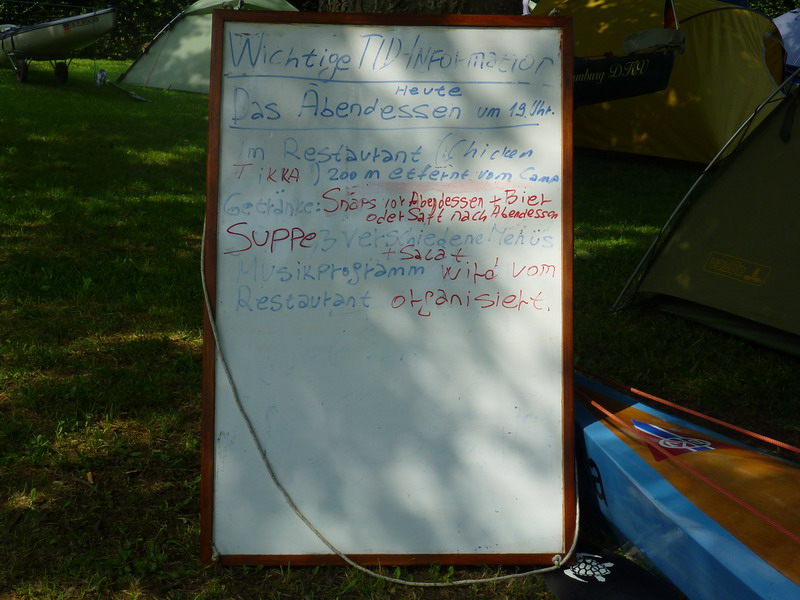 Wichtige TID-Information
Heute
Das Abendessen um 19. Uhr.
Im Restaurant (Chicken
TIKKA) 200 m etfernt vom Camp
Getränke: Snaps vor Abendessen + Bier
oder Saft nach Abendessen
SUPPE, 3 verschiedene Menüs
+ Salat
Musikprogramm wird vom
Restaurant organisiert.